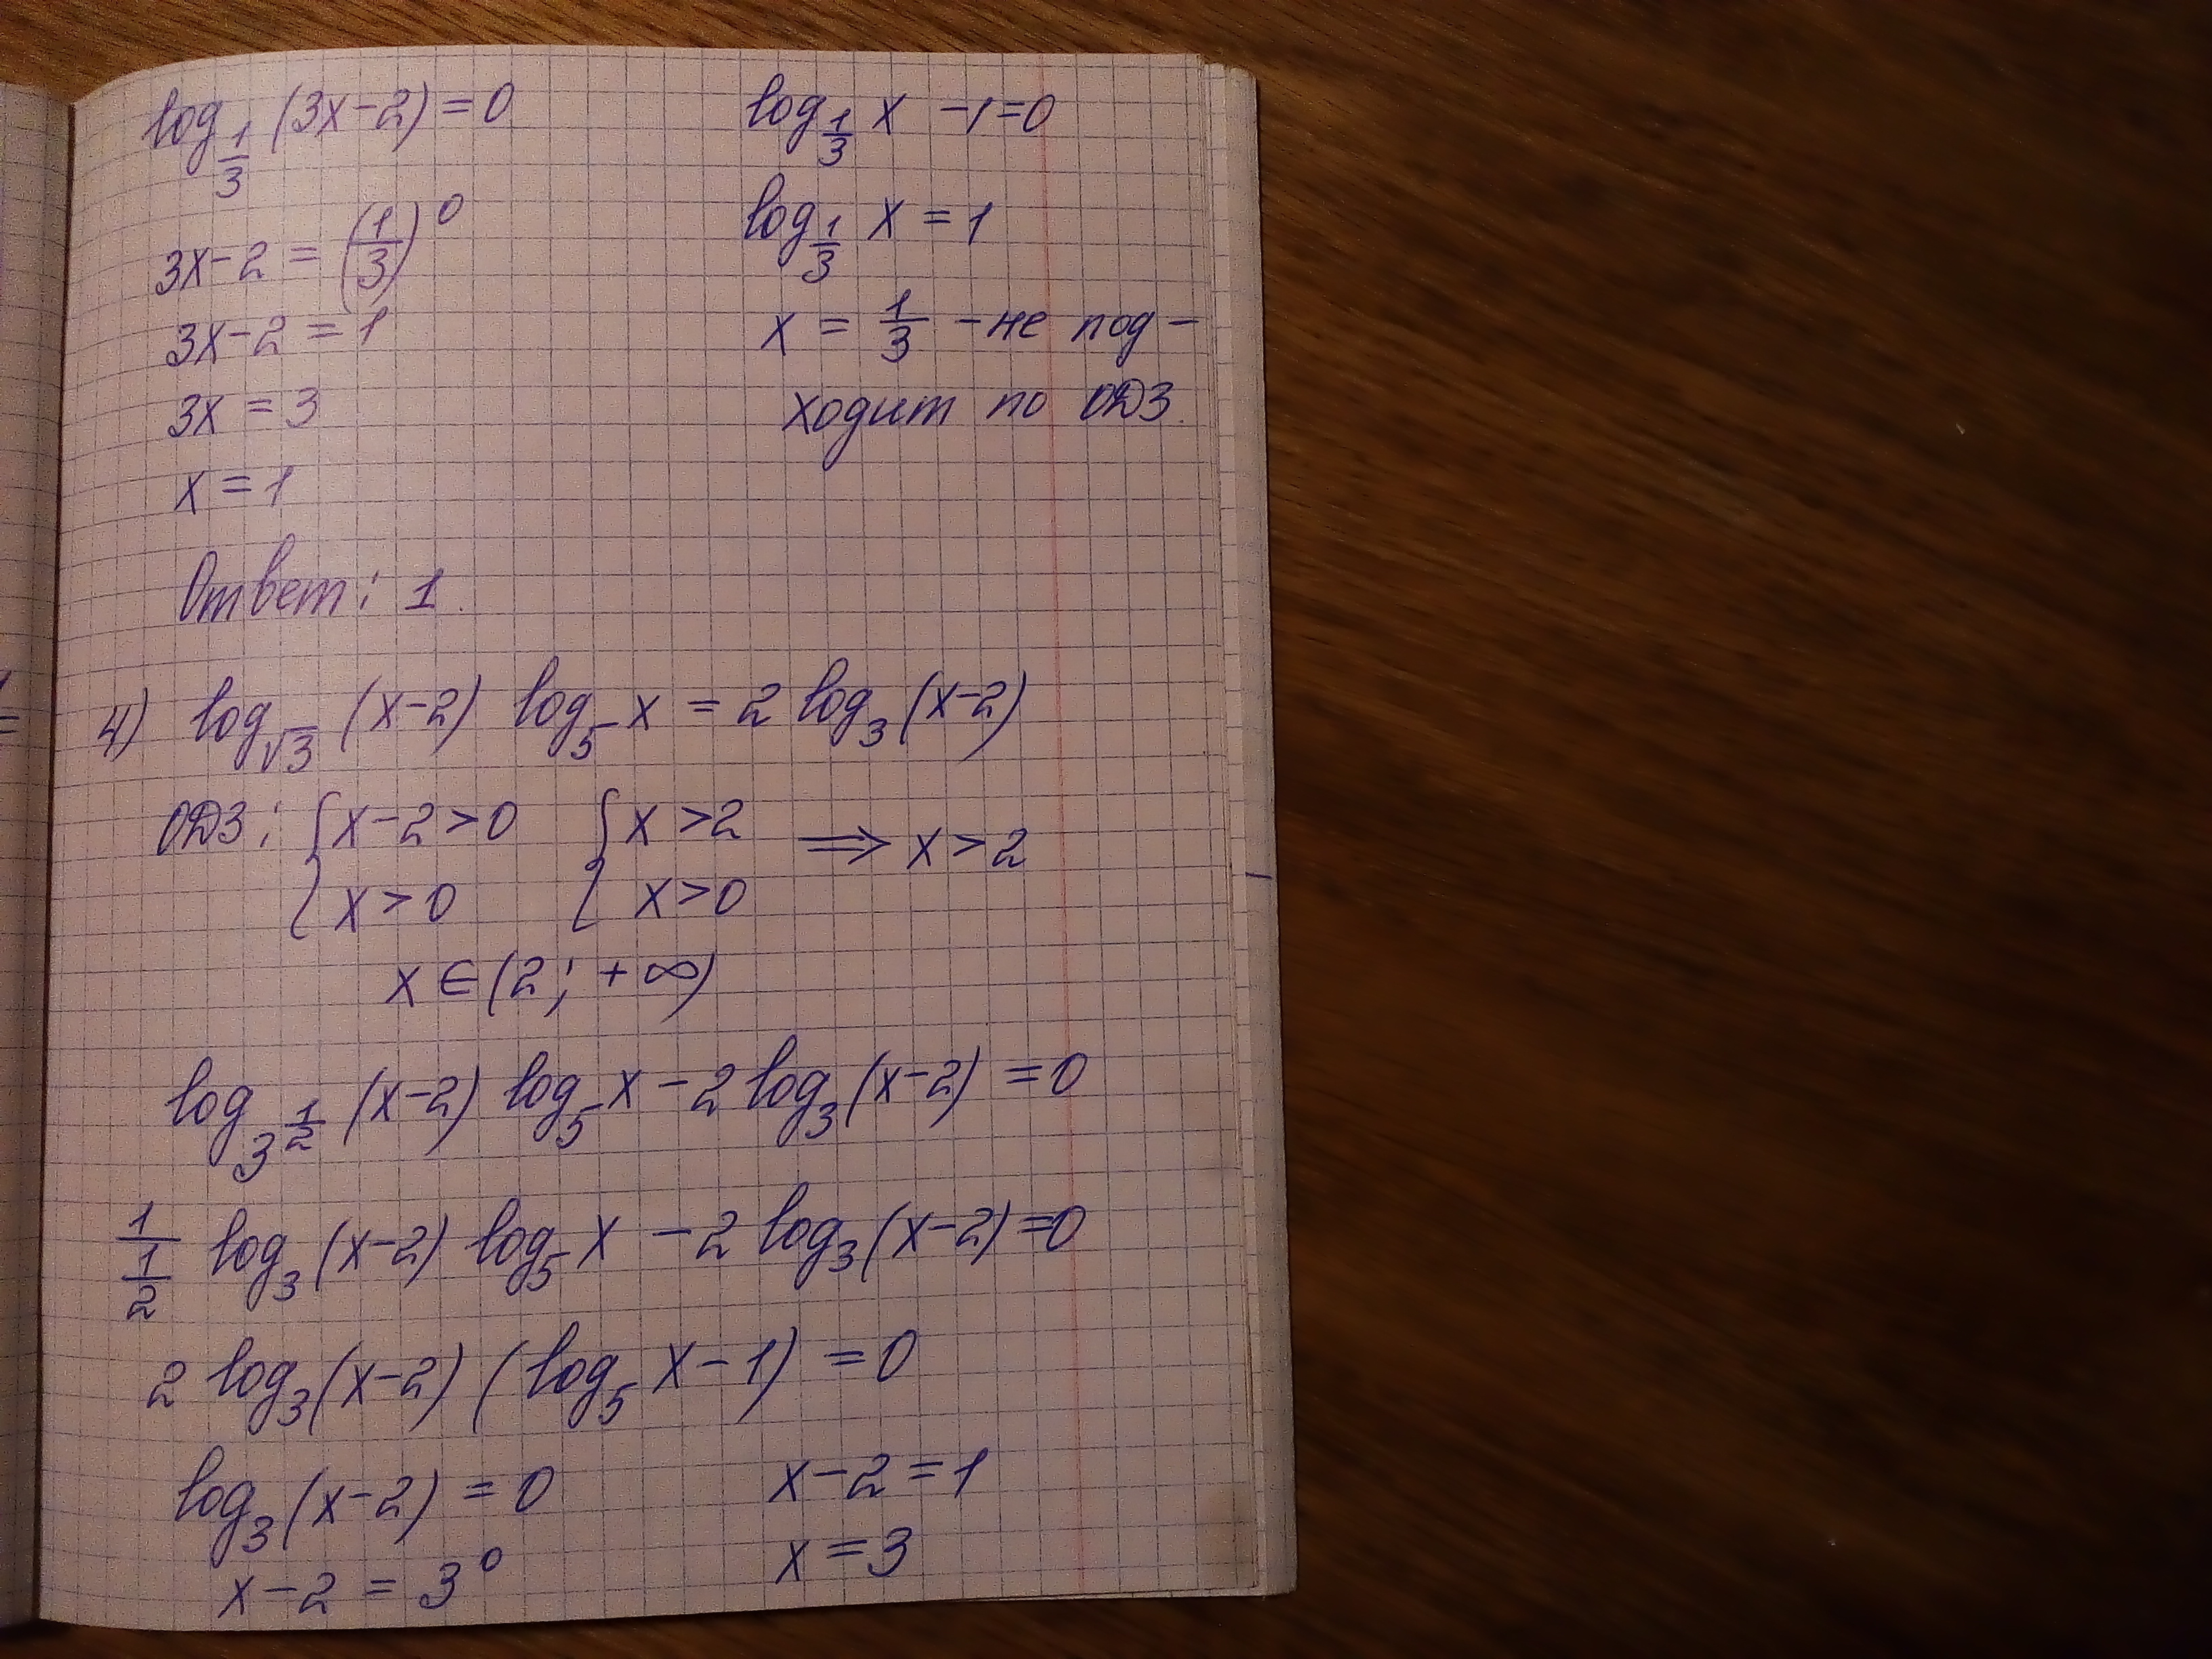 log_{1/3} (3x-2) = 0
3x-2 = (1/3)^0
3x-2 = 1
3x = 3
x = 1
log_{1/3} x -1 = 0
log_{1/3} x = 1
x = 1/3 - не под-
ходит по ОДЗ.
Ответ: 1.
4) log_{√3} (x-2) log_5 x = 2 log_3 (x-2)
ОДЗ: { x-2>0 { x>2 ⟹ x>2
x>0 x>0
x ∈ (2; +∞)
log_{3^{1/2}} (x-2) log_5 x - 2 log_3 (x-2) = 0
1/(1/2) log_3 (x-2) log_5 x - 2 log_3 (x-2) = 0
2 log_3 (x-2) (log_5 x - 1) = 0
log_3 (x-2) = 0
x-2 = 3^0
x-2 = 1
x = 3